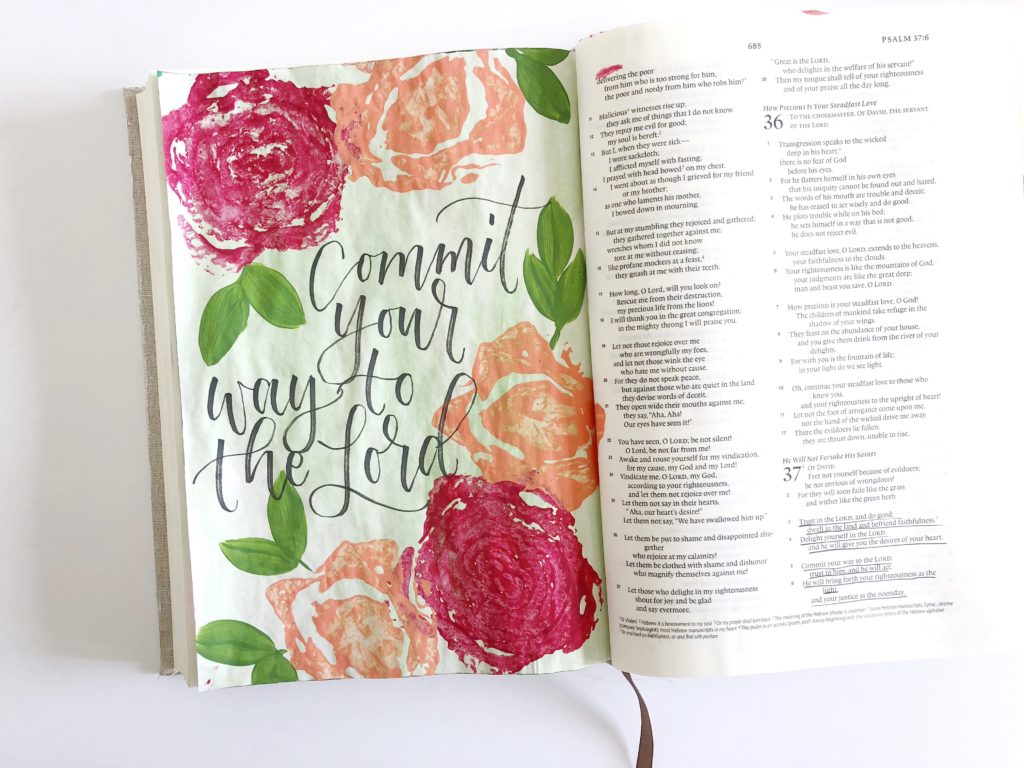 Commit
your
way to
the Lord
685
PSALM 37:6
delivering the poor
from him who is too strong for him,
the poor and needy from him who robs him?"
11 Malicious¹ witnesses rise up;
they ask me of things that I do not know.
12 They repay me evil for good;
my soul is bereft.²
13 But I, when they were sick—
I wore sackcloth;
I afflicted myself with fasting;
I prayed with head bowed³ on my chest.
14 I went about as though I grieved for my friend
or my brother;
as one who laments his mother,
I bowed down in mourning.
15 But at my stumbling they rejoiced and gathered;
they gathered together against me;
wretches whom I did not know
tore at me without ceasing;
16 like profane mockers at a feast,⁴
they gnash at me with their teeth.
17 How long, O Lord, will you look on?
Rescue me from their destruction,
my precious life from the lions!
18 I will thank you in the great congregation;
in the mighty throng I will praise you.
19 Let not those rejoice over me
who are wrongfully my foes,
and let not those wink the eye
who hate me without cause.
20 For they do not speak peace,
but against those who are quiet in the land
they devise words of deceit.
21 They open wide their mouths against me;
they say, "Aha, Aha!
Our eyes have seen it!"
22 You have seen, O LORD; be not silent!
O Lord, be not far from me!
23 Awake and rouse yourself for my vindication,
for my cause, my God and my Lord!
24 Vindicate me, O LORD, my God,
according to your righteousness,
and let them not rejoice over me!
25 Let them not say in their hearts,
"Aha, our heart's desire!"
Let them not say, "We have swallowed him up."
26 Let them be put to shame and disappointed alto-
gether
who rejoice at my calamity!
Let them be clothed with shame and dishonor
who magnify themselves against me!
27 Let those who delight in my righteousness
shout for joy and be glad
and say evermore,
"Great is the LORD,
who delights in the welfare of his servant!"
28 Then my tongue shall tell of your righteousness
and of your praise all the day long.
How Precious Is Your Steadfast Love
36 TO THE CHOIRMASTER. OF DAVID, THE SERVANT
OF THE LORD.
1 Transgression speaks to the wicked
deep in his heart;⁵
there is no fear of God
before his eyes.
2 For he flatters himself in his own eyes
that his iniquity cannot be found out and hated.
3 The words of his mouth are trouble and deceit;
he has ceased to act wisely and do good.
4 He plots trouble while on his bed;
he sets himself in a way that is not good;
he does not reject evil.
5 Your steadfast love, O LORD, extends to the heavens,
your faithfulness to the clouds.
6 Your righteousness is like the mountains of God;
your judgments are like the great deep;
man and beast you save, O LORD.
7 How precious is your steadfast love, O God!
The children of mankind take refuge in the
shadow of your wings.
8 They feast on the abundance of your house,
and you give them drink from the river of your
delights.
9 For with you is the fountain of life;
in your light do we see light.
10 Oh, continue your steadfast love to those who
know you,
and your righteousness to the upright of heart!
11 Let not the foot of arrogance come upon me,
nor the hand of the wicked drive me away.
12 There the evildoers lie fallen;
they are thrust down, unable to rise.
He Will Not Forsake His Saints
37⁶ OF DAVID.
Fret not yourself because of evildoers;
be not envious of wrongdoers!
2 For they will soon fade like the grass
and wither like the green herb.
3 Trust in the LORD, and do good;
dwell in the land and befriend faithfulness.⁷
4 Delight yourself in the LORD,
and he will give you the desires of your heart.
5 Commit your way to the LORD;
trust in him, and he will act.
6 He will bring forth your righteousness as the
light,
and your justice as the noonday.